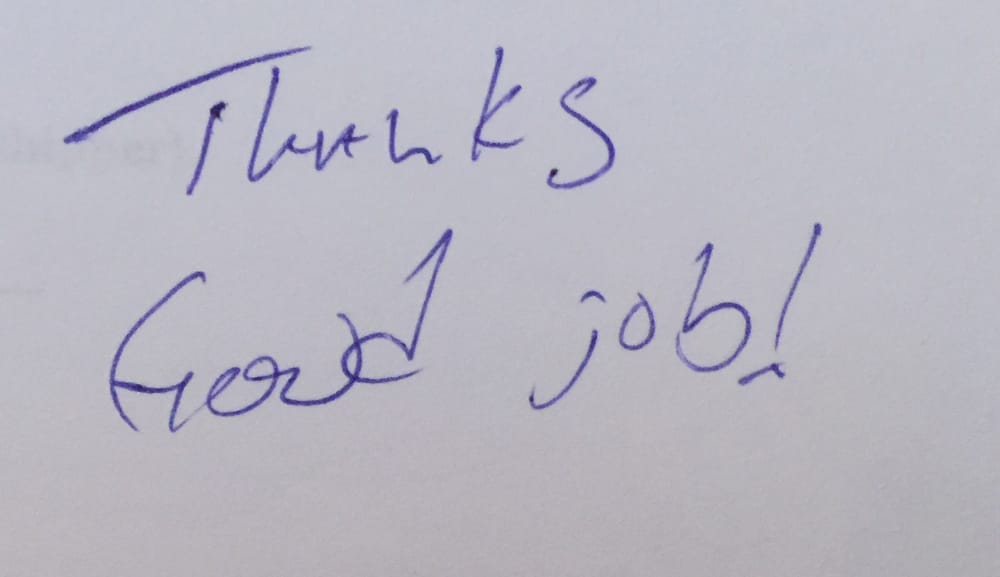 Thanks
Good job!